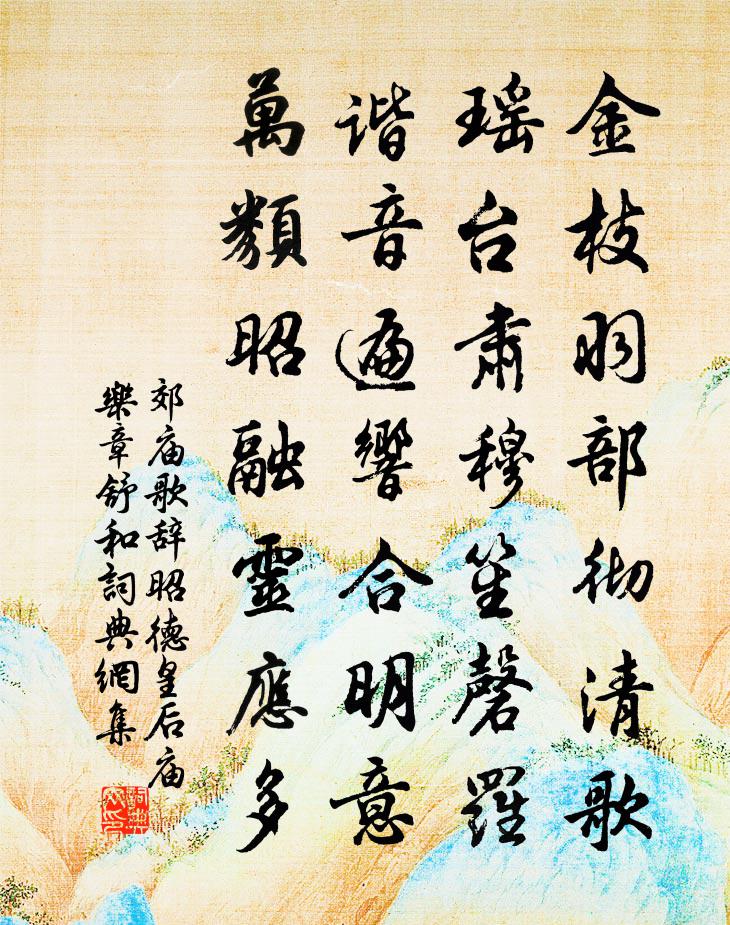 金枝羽部彻清歌
瑶台肃穆笙磬羅
谐音遍響合明意
萬類昭融靈應多
郊庙歌辞昭德皇后庙
樂章舒和詞典網集